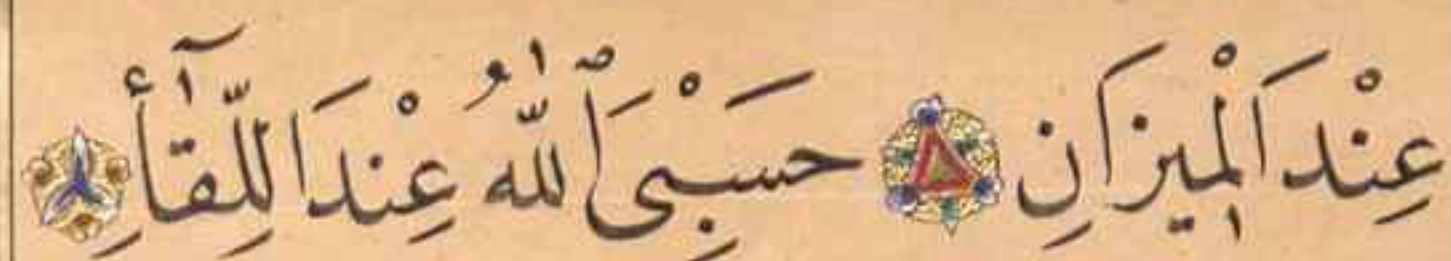 عِنْدَ الْمِيزَانِ حَسْبِىَ ٱللّٰهُ عِنْدَ اللِّقَآأِ